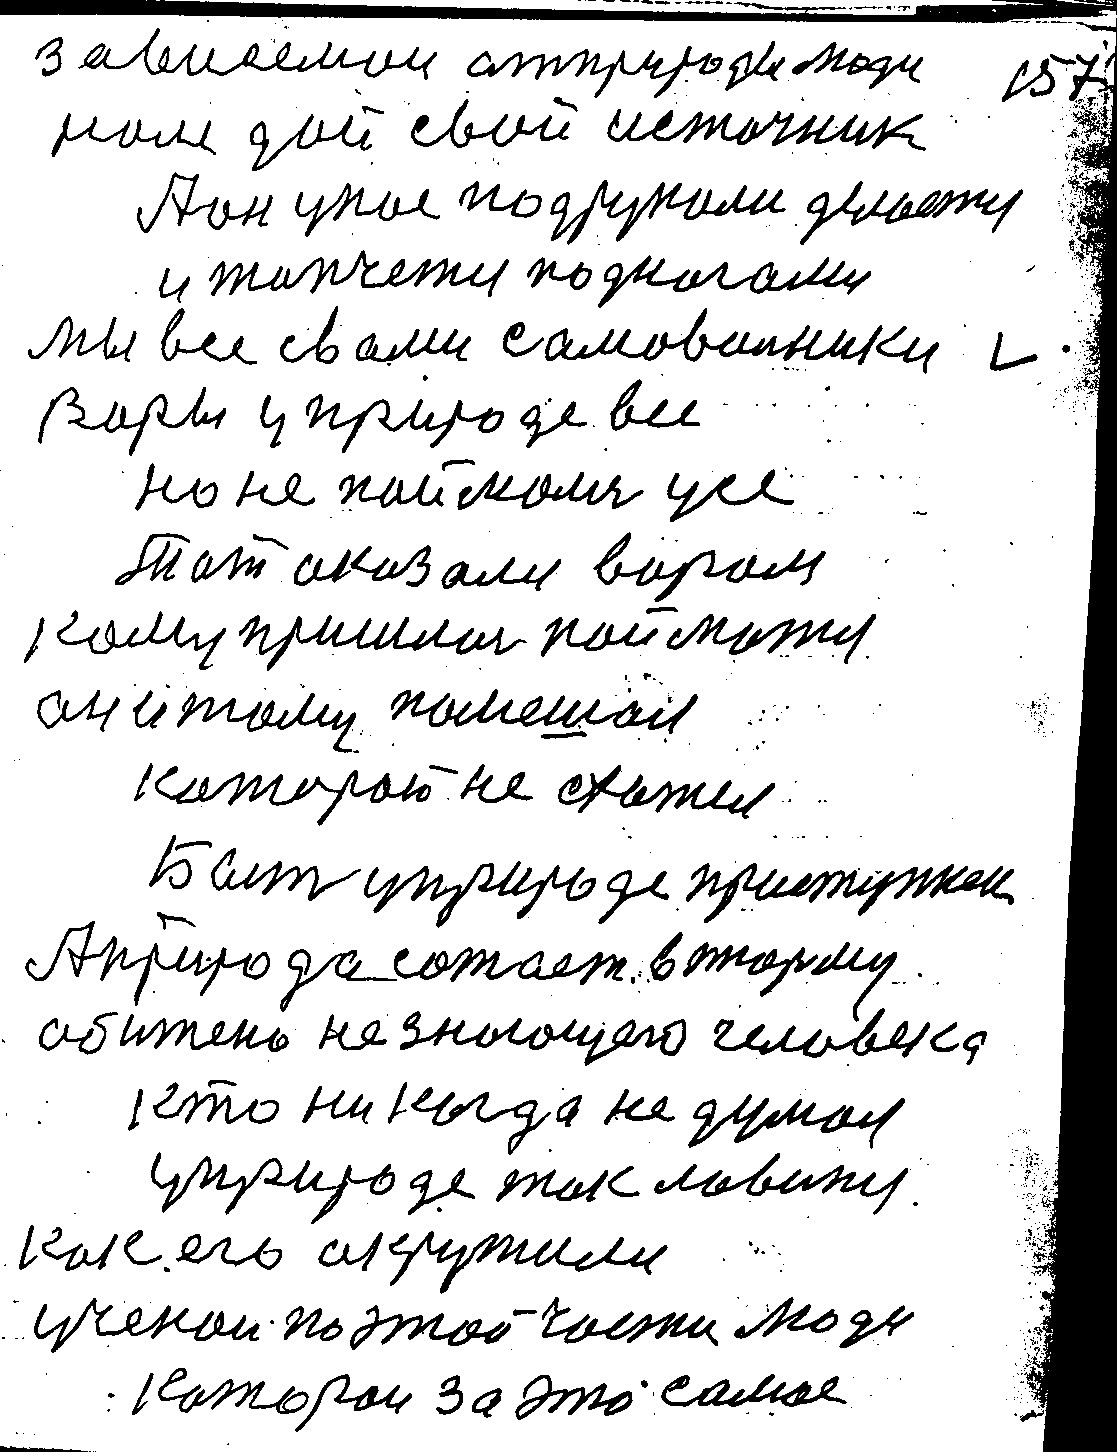 зависемои атприроды люди 157
нам дай свой источник
Аон унас подруками деластя
и топчетя подногами
мы все свами самоволники
Воры у природе все
но не поймался усе
Тот оказалси ворам
Кому пришлось пойматя
он итому помешал
которай не схател
Быт уприроде приступнек
Априрода сожает втюрму
обижено незнающего человека
Кто никогда не думал
уприроде так ловитя
Как его окружили
ученои поэтой части люди
которои за это самое